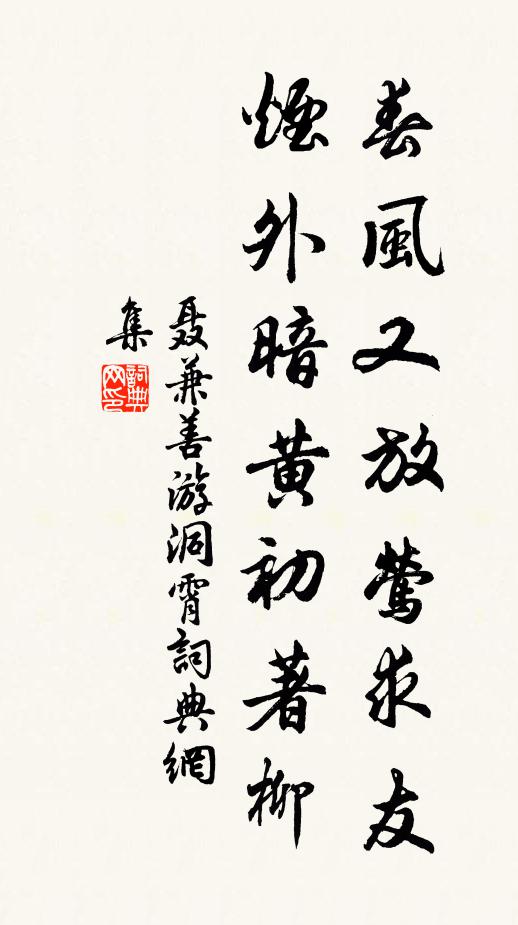 春風又放鶯求友
煙外暗黃初著柳
聂兼善游洞霄詞典網
集
詞典網印